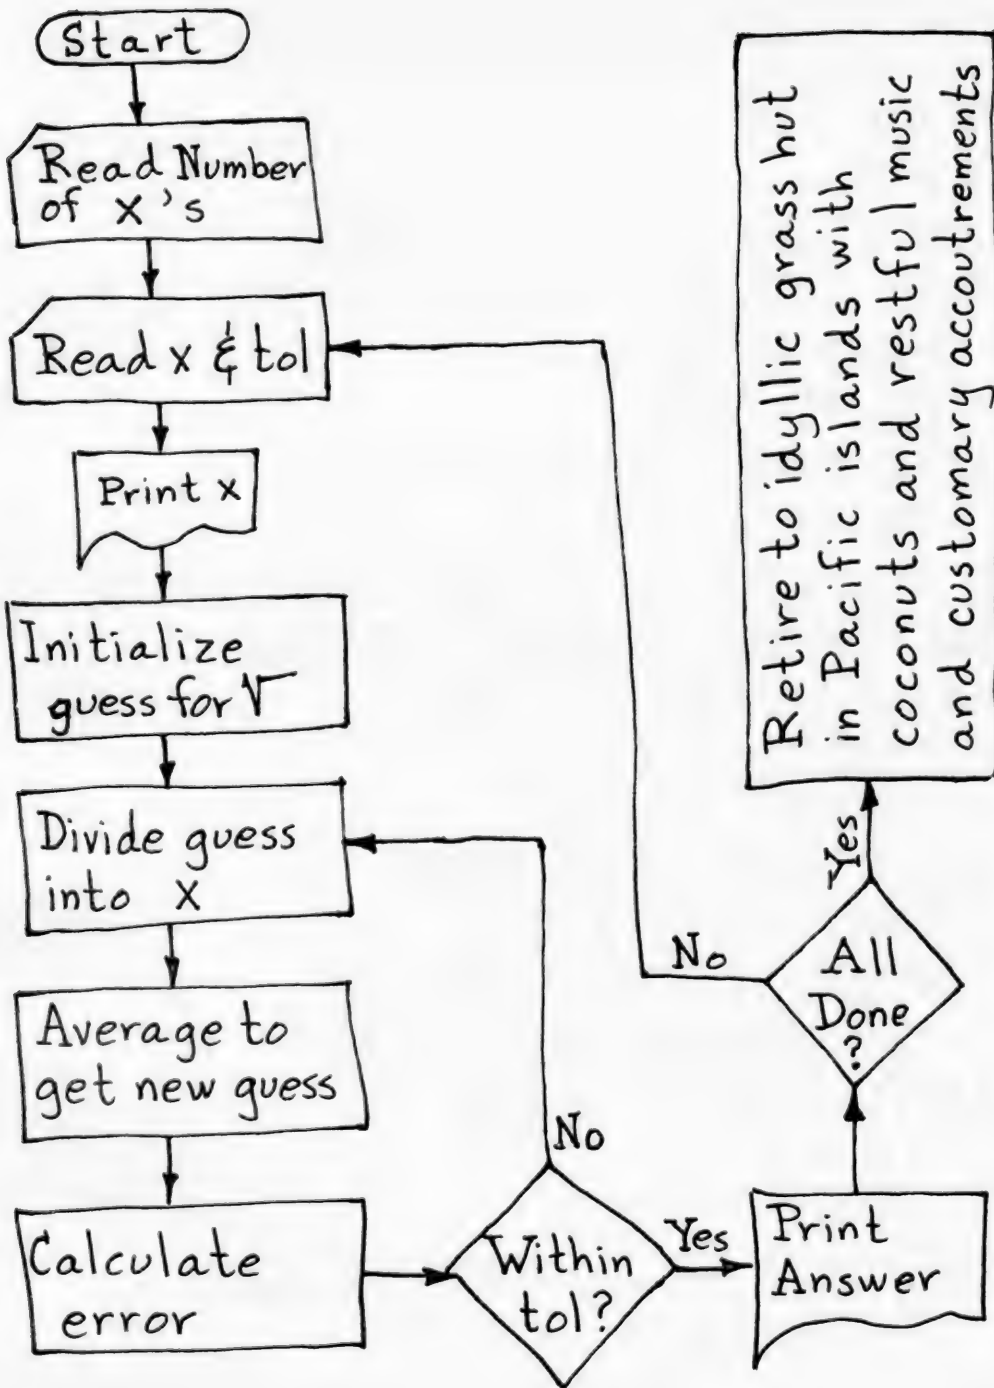 Start
Read Number
of X's
Read x & tol
Print x
Initialize
guess for √
Divide guess
into X
Average to
get new guess
Calculate
error
Within
tol?
No
Yes
Print
Answer
All
Done
?
No
Yes
Retire to idyllic grass hut
in Pacific islands with
coconuts and restful music
and customary accoutrements